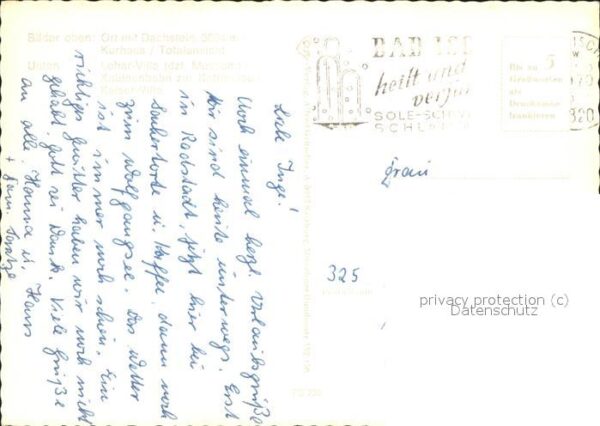 Bilder oben: Ort mit Dachstein, 3004 m
Kurhaus / Totalansicht
Unten: Lehár-Villa (dzt. Museum)
Kaiser-Villa
BAD ISC
heilt und
verjü
SOLE-SCHW
SCHL
Bis zu 5
Grußworten
als
Drucksache
frankieren
820
Liebe Inge!
Noch einmal herzl. Urlaubsgrüße
Wir sind heute unterwegs. Erst
in Radstadt, jetzt hier bei
Sachertorte u. Kaffee, dann noch
zum Wolfgangsee. Das Wetter
ist immer noch schön. Ein
richtiges Gewitter haben wir noch nicht
gehabt, Gott sei Dank. Viele Grüße
an alle. Hanna u. Hans
+ Fam.
Frau
325
privacy protection (c)
Datenschutz